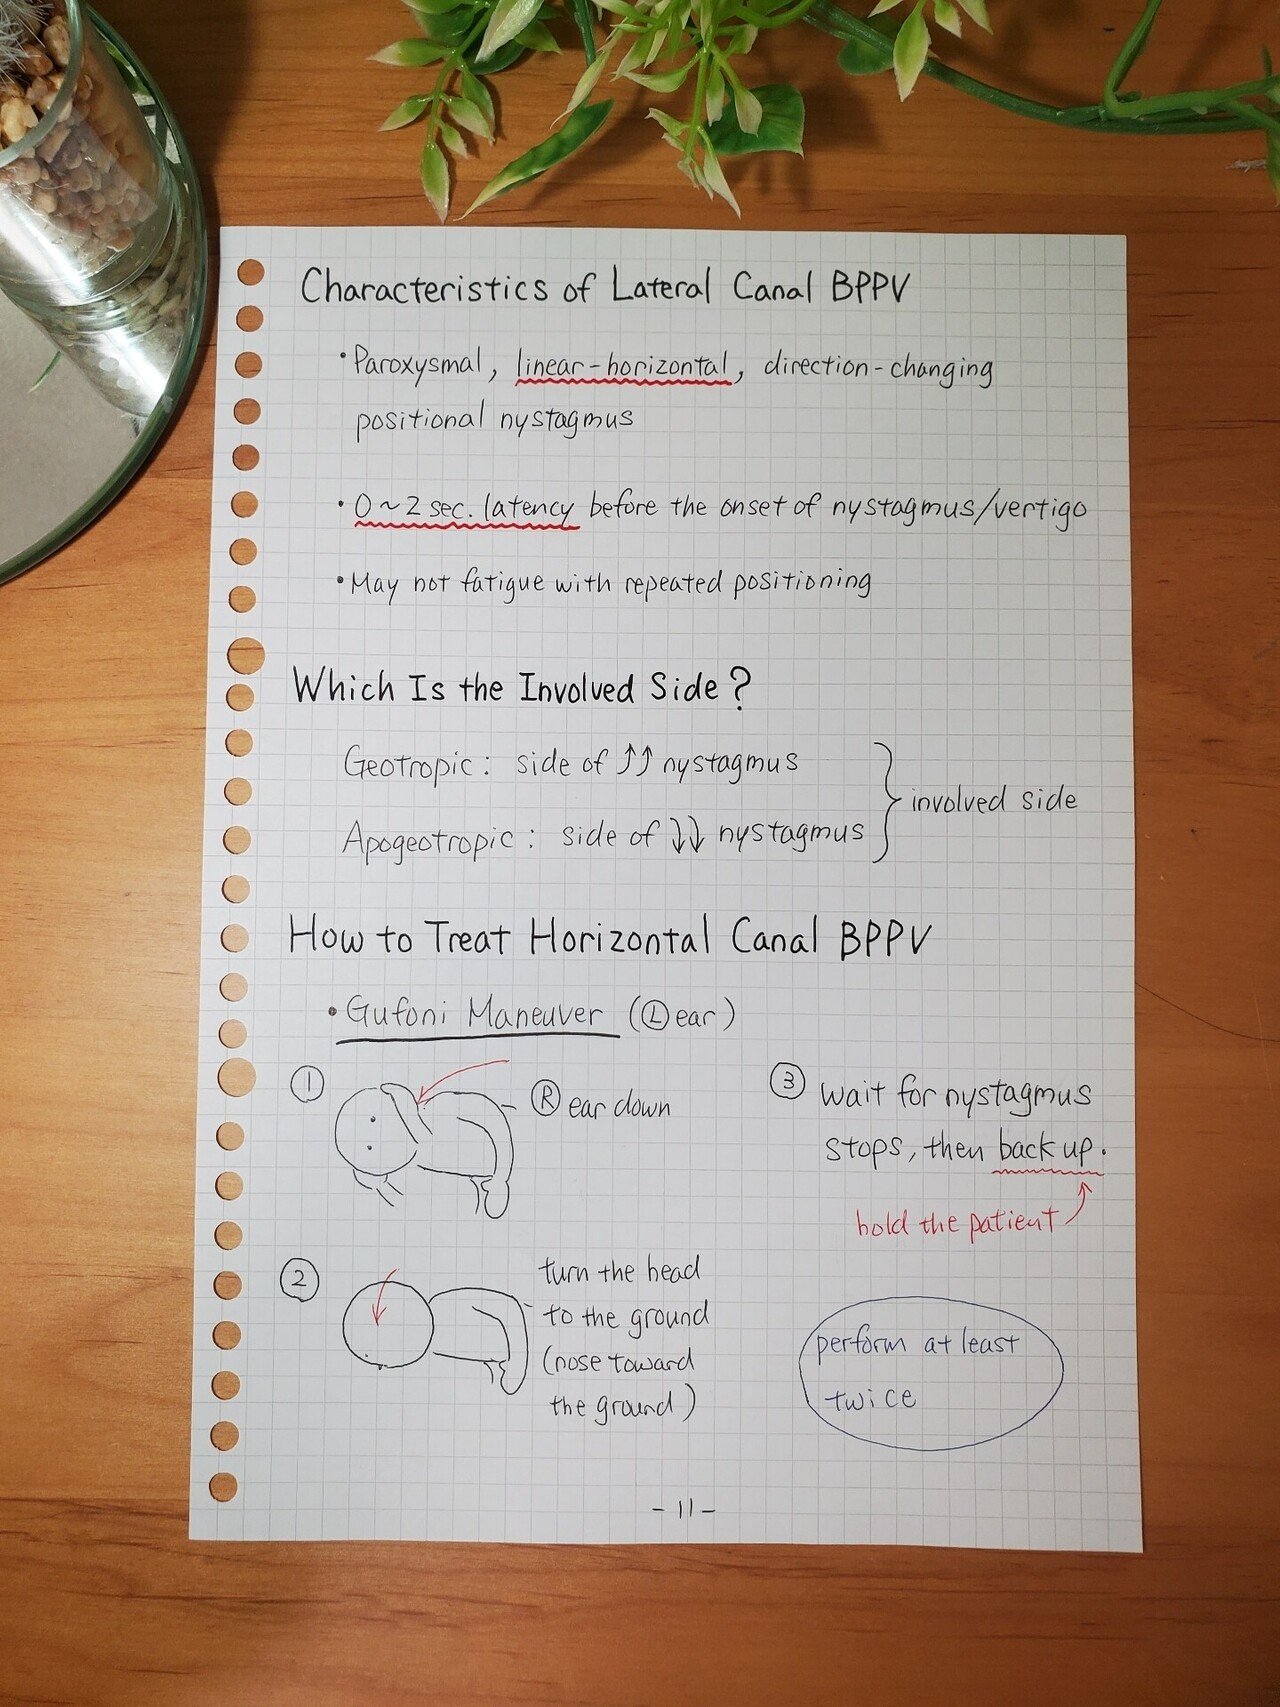 Characteristics of Lateral Canal BPPV
•Paroxysmal, linear-horizontal, direction-changing
positional nystagmus
•0~2 sec. latency before the onset of nystagmus/vertigo
•May not fatigue with repeated positioning
Which Is the Involved Side?
Geotropic: side of ↑↑ nystagmus
Apogeotropic: side of ↓↓ nystagmus
involved side
How to Treat Horizontal Canal BPPV
•Gufoni Maneuver (Ⓛ ear)
①
Ⓡ ear down
②
turn the head
to the ground
(nose toward
the ground)
③ wait for nystagmus
stops, then back up.
hold the patient
perform at least
twice
-11-